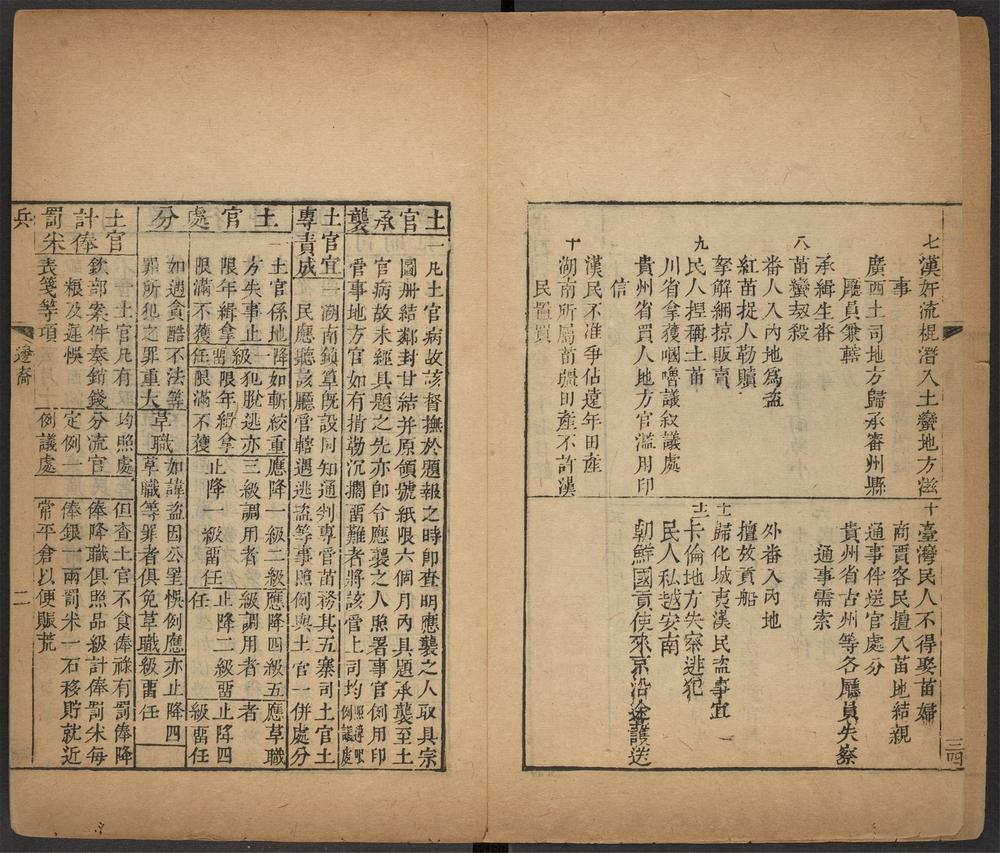 七漢奸流棍潛入土蠻地方滋
事
廣西土司地方歸承審州縣
廳員兼轄
承緝生番
八苗蠻刼殺
番人入內地爲盜
紅苗捉人勒贖
拏解綑掠販賣
九民人捏稱土苗
川省拿獲嘓嚕議敘議處
貴州省買人地方官濫用印
信
漢民不准爭佔遠年田產
十湖南所屬苗疆田產不許漢
民置買
十臺灣民人不得娶苗婦
商賈客民擅入苗地結親
通事伴送官處分
貴州省古州等各廳員失察
通事需索
外番入內地
擅放貢船
十一歸化城夷漢民盜事宜
十二卡倫地方失察逃犯
民人私越安南
朝鮮國貢使來京沿途護送
三四
土官承襲
一凡土官病故該督撫於題報之時卽查明應襲之人取具宗
圖册結鄰封甘結并原領號紙限六個月內具題承襲至土
官病故未經具題之先亦卽令應襲之人照署事官例用印
管事地方官如有揹勒沉擱畱難者將該管上司均照遲誤例議處
土官宜專責成
一湖南鎮筸旣設同知通判專管苗務其五寨司土官土
民應聽該廳官轄遇逃盜等事照例與土官一併處分
土官處分
土官係地方失事止限年緝拿限滿不獲
降一級畱任
如斬絞重犯脫逃亦限年緝拿限滿不獲
應降一級二級三級調用者止降一級畱任
應降四級五級調用者止降二級畱任
應革職者止降四級畱任
如遇貪酷不法等罪所犯之罪重大
革職
如諱盜因公罣悞例應革職等罪者俱免革職
亦止降四級畱任
土官計俸罰米
一土官凡有欽部案件奏銷錢糧及遲悞表箋等項
均照處分流官定例一例議處
但查土官不食俸祿有罰俸降俸降職俱照品級計俸罰米每俸銀一兩罰米一石移貯就近常平倉以便賑荒
兵
邊裔
二